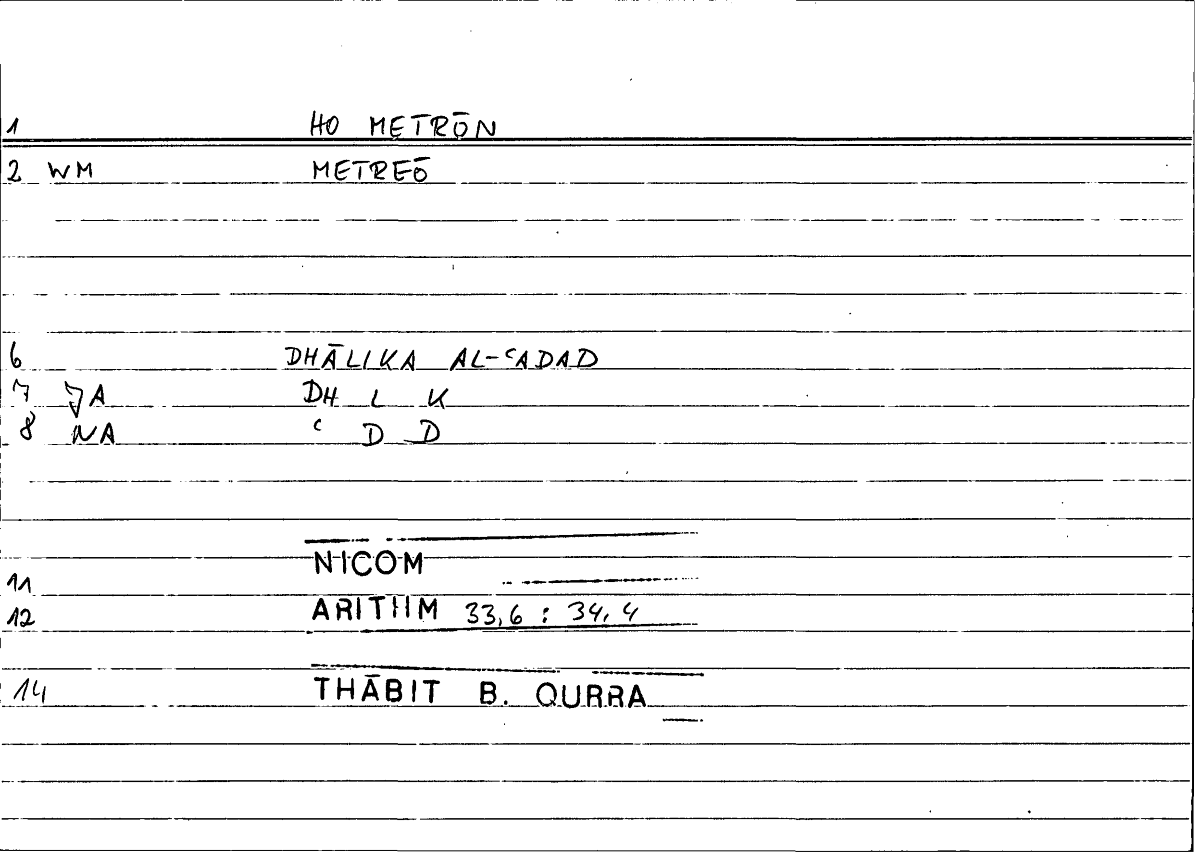 1 HO METRŌN
2 WM METREŌ
6 DHĀLIKA AL-ʿADAD
7 JA DH L K
8 NA ʿ D D
NICOM
11
12 ARITHM 33,6 : 34,4
14 THĀBIT B. QURRA